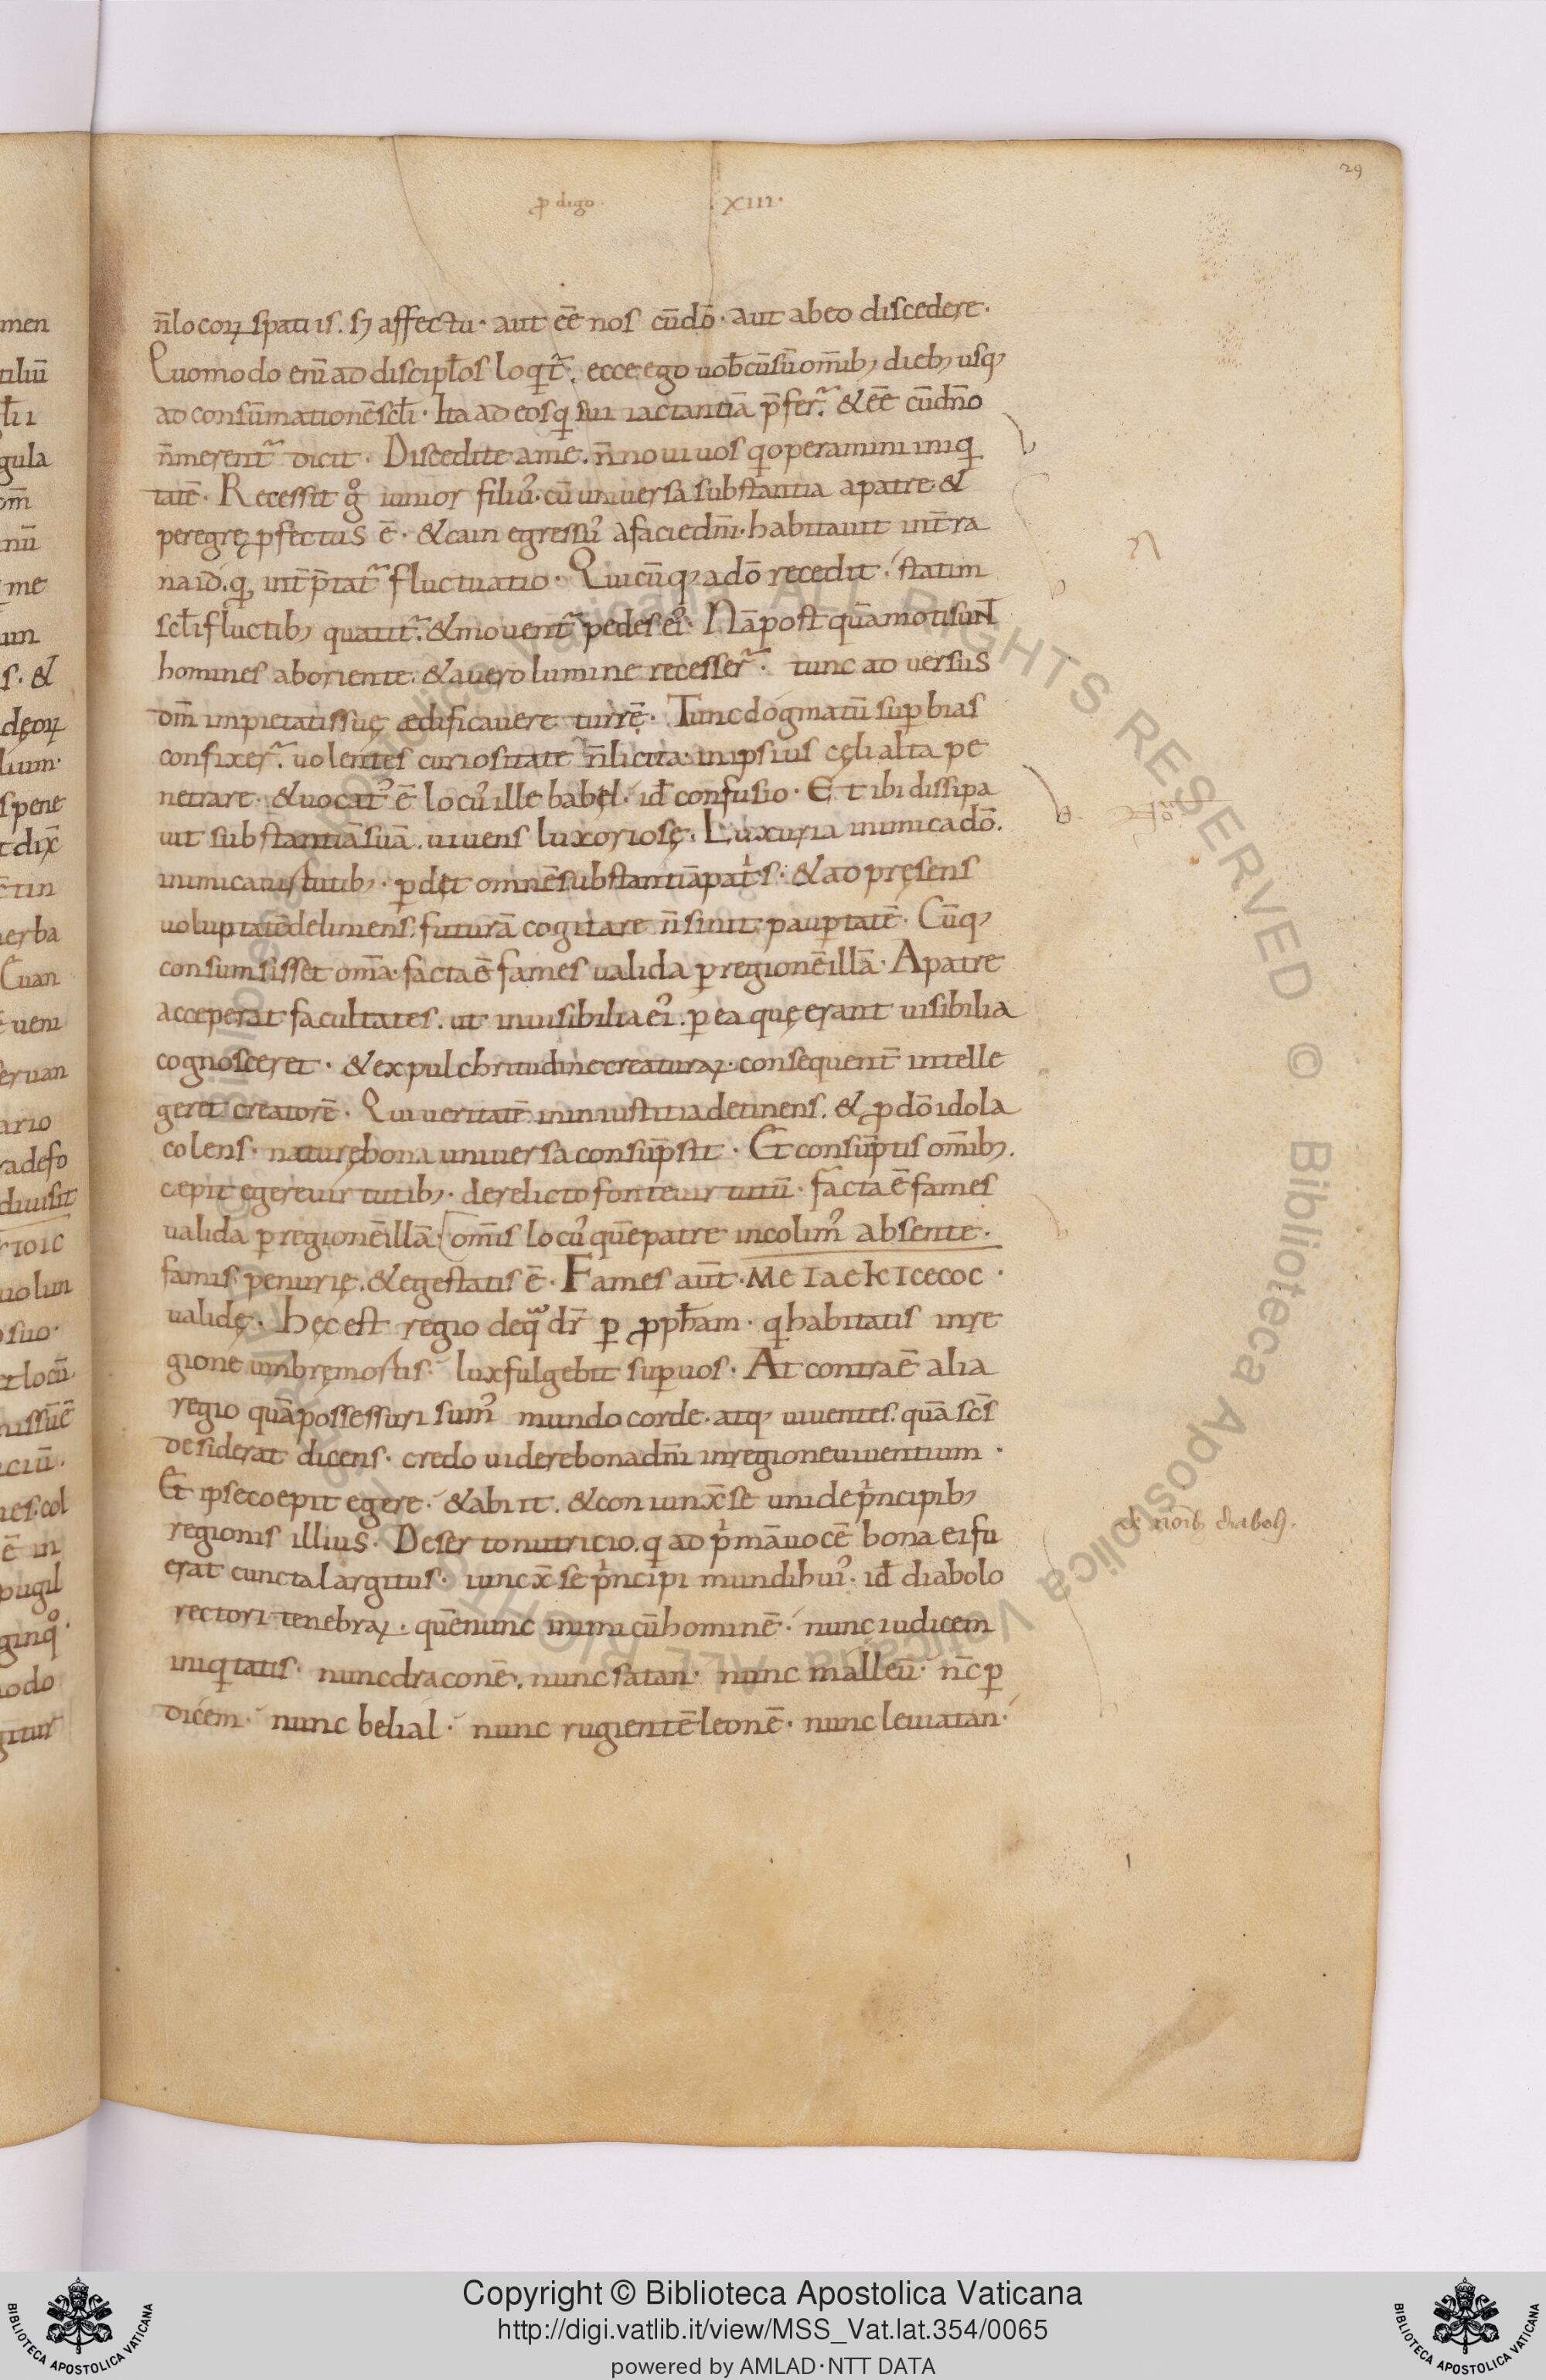 29
ꝓdigo. XIII.
n̄ locoꝝ spatiis. sꝫ affectu. aut ēē nos cū dō. aut ab eo discedere.
Quomodo eni̅ ad discipłos loqͥt᷑. ecce ego uob̅cū sū om̅ibꝫ diebꝫ usqꝫ
ad consūmationē scłi. Ita ad eos qͥ sui iactantiā p̄fer᷑. & ēē cū dn̄o
n̄ merent᷑ dicit. Discedite a me. n̄ noui uos qͥ operamini iniqͥ
tatē. Recessit gͦ iunior filiuꝰ. cū uniuersa substantia a patre &
peregrę ꝓfectus ē. & cain egressuꝰ a facie dn̄i. habitauit in t̄ra
naid. qͥ int̄p̄tat᷑ fluctuatio. Quicūqꝫ a dō recedit. statim
scłi fluctibꝫ quatit᷑. & mouent᷑ pedes eiꝰ. Nā postquā moti sun̅t
homines ab oriente. & a uero lumine recesser᷑. tunc aduersus
dm̄ impietatis suę ædificauere turrē. Tunc dogmatū suꝑbias
confixer᷑. uolentes curiositate n̄ licita. in ipsius cęli alta pe
netrare. & uocatꝰ ē locuꝰ ille babęl. id̄ confusio. Et ibi dissipa
uit substantiā suā. uiuens luxoriosę. Luxuria inimica dō.
inimica uirtutibꝫ. ꝑdęt omnē substantiā patͥs. & ad pręsens
uoluptatē deliniens. futurā cogitare n̄ sinit. pauꝑtatē. Cūqꝫ
consumsisset om̅a. facta ē fames ualida ꝑ regionē illā. A patre
acceperat facultates. ut inuisibilia eiꝰ. ꝑ ea quę erant uisibilia
cognosceret. & ex pulchritudine creaturaꝝ. consequent̄ intelle
geret creatorē. Qui ueritatē in iniustitia detinens. & ꝓ dō idola
colens. naturę bona uniuersa consūpsit. Et consūptis om̅ibꝫ.
cæpit egere uirtutibꝫ. derelicto fonte uirtutū. facta ē fames
ualida ꝑ regionē illā. om̅is locuꝰ quē patre incolimꝰ absente.
famis. penurię. & egestatis ē. Fames aūt. ΜΕ ΙΑ Ε Κ ΙCΕCΟC.
ualidę. Hęc est regio de qͣ dr̄ ꝑ ꝓph̅am. qͥ habitatis in re
gione umbrę mortis. lux fulgebit suꝑ uos. At contra ē alia
regio quā possessuri sumꝰ mundo corde. atqꝫ uiuentes. quā sc̄s
desiderat dicens. credo uidere bona dn̄i in regione uiuentium.
Et ipse coepit egere. & abiit. & coniunx̄ se uni de pͥncipibꝫ
regionis illius. Deserto nutricio. qͥ ad pͥmā uocē bona ei fu
erat cuncta largitus. iuncx̄ se pͥncipi mundi huiꝰ. id̄ diabolo
rectori tenebraꝝ. quē nunc inimicū hominē. nunc iudicem
iniqͥtatis. nunc draconē. nunc satan. nunc malleū. nc̄ ꝑ
dicem. nunc belial. nunc rugientē leonē. nunc leuiatan.
de noibꝫ diaboli.
Copyright © Biblioteca Apostolica Vaticana
http://digi.vatlib.it/view/MSS_Vat.lat.354/0065
powered by AMLAD·NTT DATA